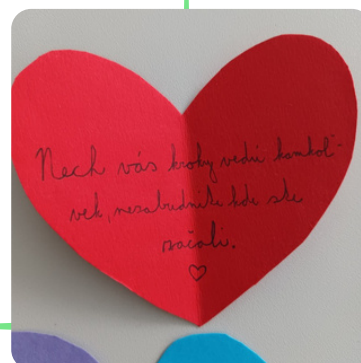 Nech vás kroky vedú kamkoľ-
vek, nezabudnite kde ste
začali.